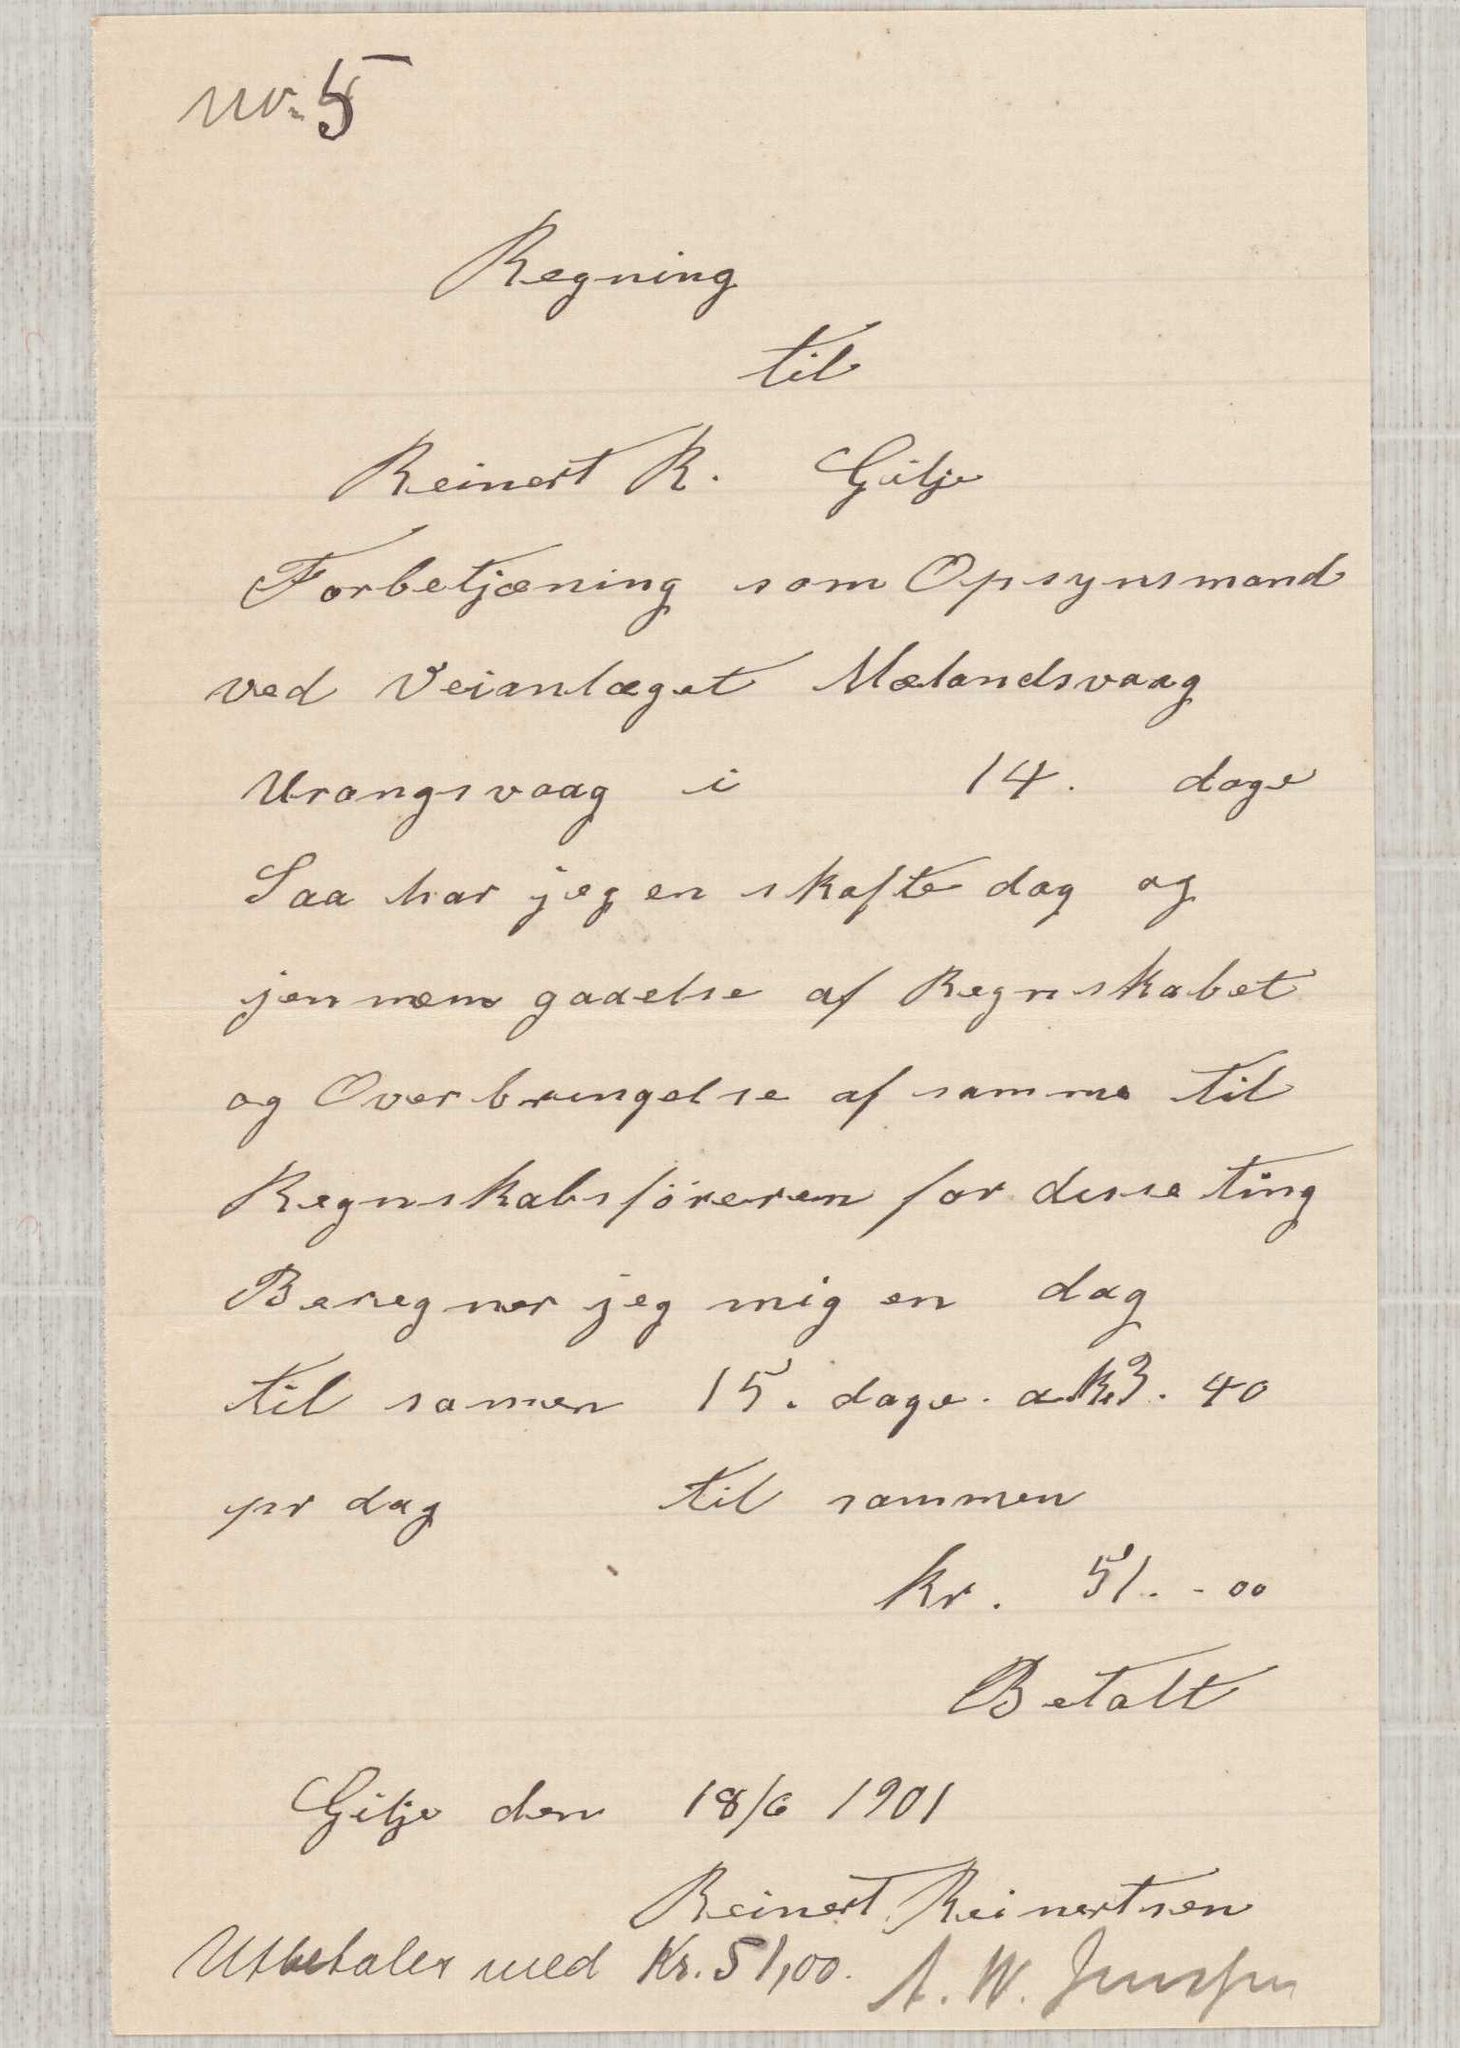 no. 5
Regning
til
Reinert R. Gilje
Forbetjæning som Opsynsmand
ved Veianlæget Mælandsvaag
Urangsvaag i 14. dage
Saa har jeg en skafte dag og
jennem gaaelse af Regnskabet
og Over bringelse af samme til
Regnskabsföreren for disse ting
Beregner jeg mig en dag
til samen 15. dage. a kr 3. 40
pr dag til sammen
kr. 51. - 00
Betalt
Gilje den 18/6 1901
Reinert Reinertsen
Utbetales med Kr. 51,00. A. W.